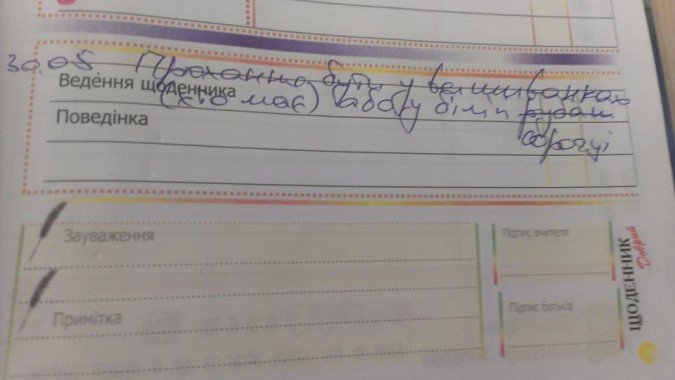 30.05 Прохання бути у вишиванках
Ведення щоденника
(хто має) або у білій
сорочці
Поведінка
Зауваження
Підпис вчителя
Примітка
Підпис батьків
ЩОДЕННИК
Добрий